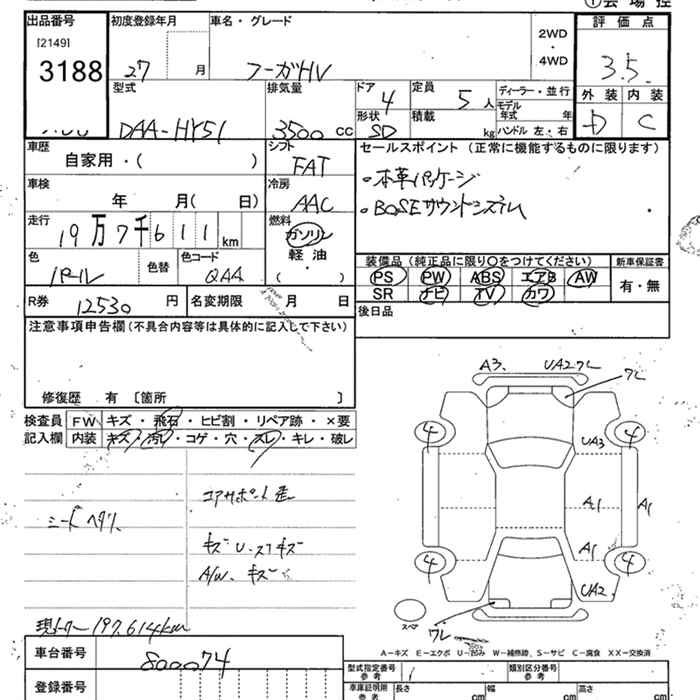 出品番号 初度登録年月 車名・グレード 評価点
[2149]
3188 27 月 フーガHV 2WD・4WD 3.5
型式 排気量 ドア 4 定員 5人 ディーラー・並行 外装 内装
モデル年式 年
DAA-HY51 3500 cc 形状 SD 積載 kg ハンドル 左・右 D C
車歴 シフト セールスポイント (正常に機能するものに限ります)
自家用・( ) FAT
・本革パッケージ
車検 冷房
年 月( 日) AAC ・BOSEサウンドシステム
走行 燃料
19万7千611km ガソリン
装備品 (純正品に限り○をつけてください) 新車保証書
色 色替 色コード 軽油
パール QAA ・( )
PS PW ABS エアB AW 有・無
SR ナビ TV カワ
R券 12530 円 名変期限 月 日
後日品
注意事項申告欄(不具合内容等は具体的に記入して下さい)
修復歴 有 〔箇所 〕
検査員 FW キズ・飛石・ヒビ割・リペア跡・×要
記入欄 内装 キズ・汚れ・コゲ・穴・スレ・キレ・破レ
コアサポート歪
シートヘタリ
キズ U スリキズ
A/W キズ
現メーター 197,614km
車台番号 800074
登録番号
A3 UA2ワレ
ワレ
4 4
UA3
A1 A1
A1
4 4
UA2
スペア
ワレ
A-キズ E-エクボ U-凹み W-補修跡 S-サビ C-腐食 XX-交換済
型式指定番号 参考 類別区分番号 参考
車庫証明用 参考 長さ cm 幅 cm 高さ cm